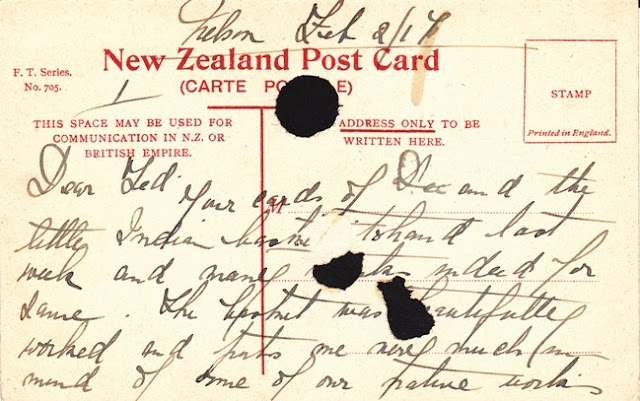 Nelson Feb 2/17
New Zealand Post Card
F. T. Series.
No. 705.
(CARTE PO LE)
1
STAMP
Printed in England.
THIS SPACE MAY BE USED FOR
COMMUNICATION IN N.Z. OR
BRITISH EMPIRE.
ADDRESS ONLY TO BE
WRITTEN HERE.
Dear Ted
Your cards of Dec and the
little Indian basket to hand last
week and many indeed for
same. The basket was beautifully
worked and puts me very much in
mind of some of our native work